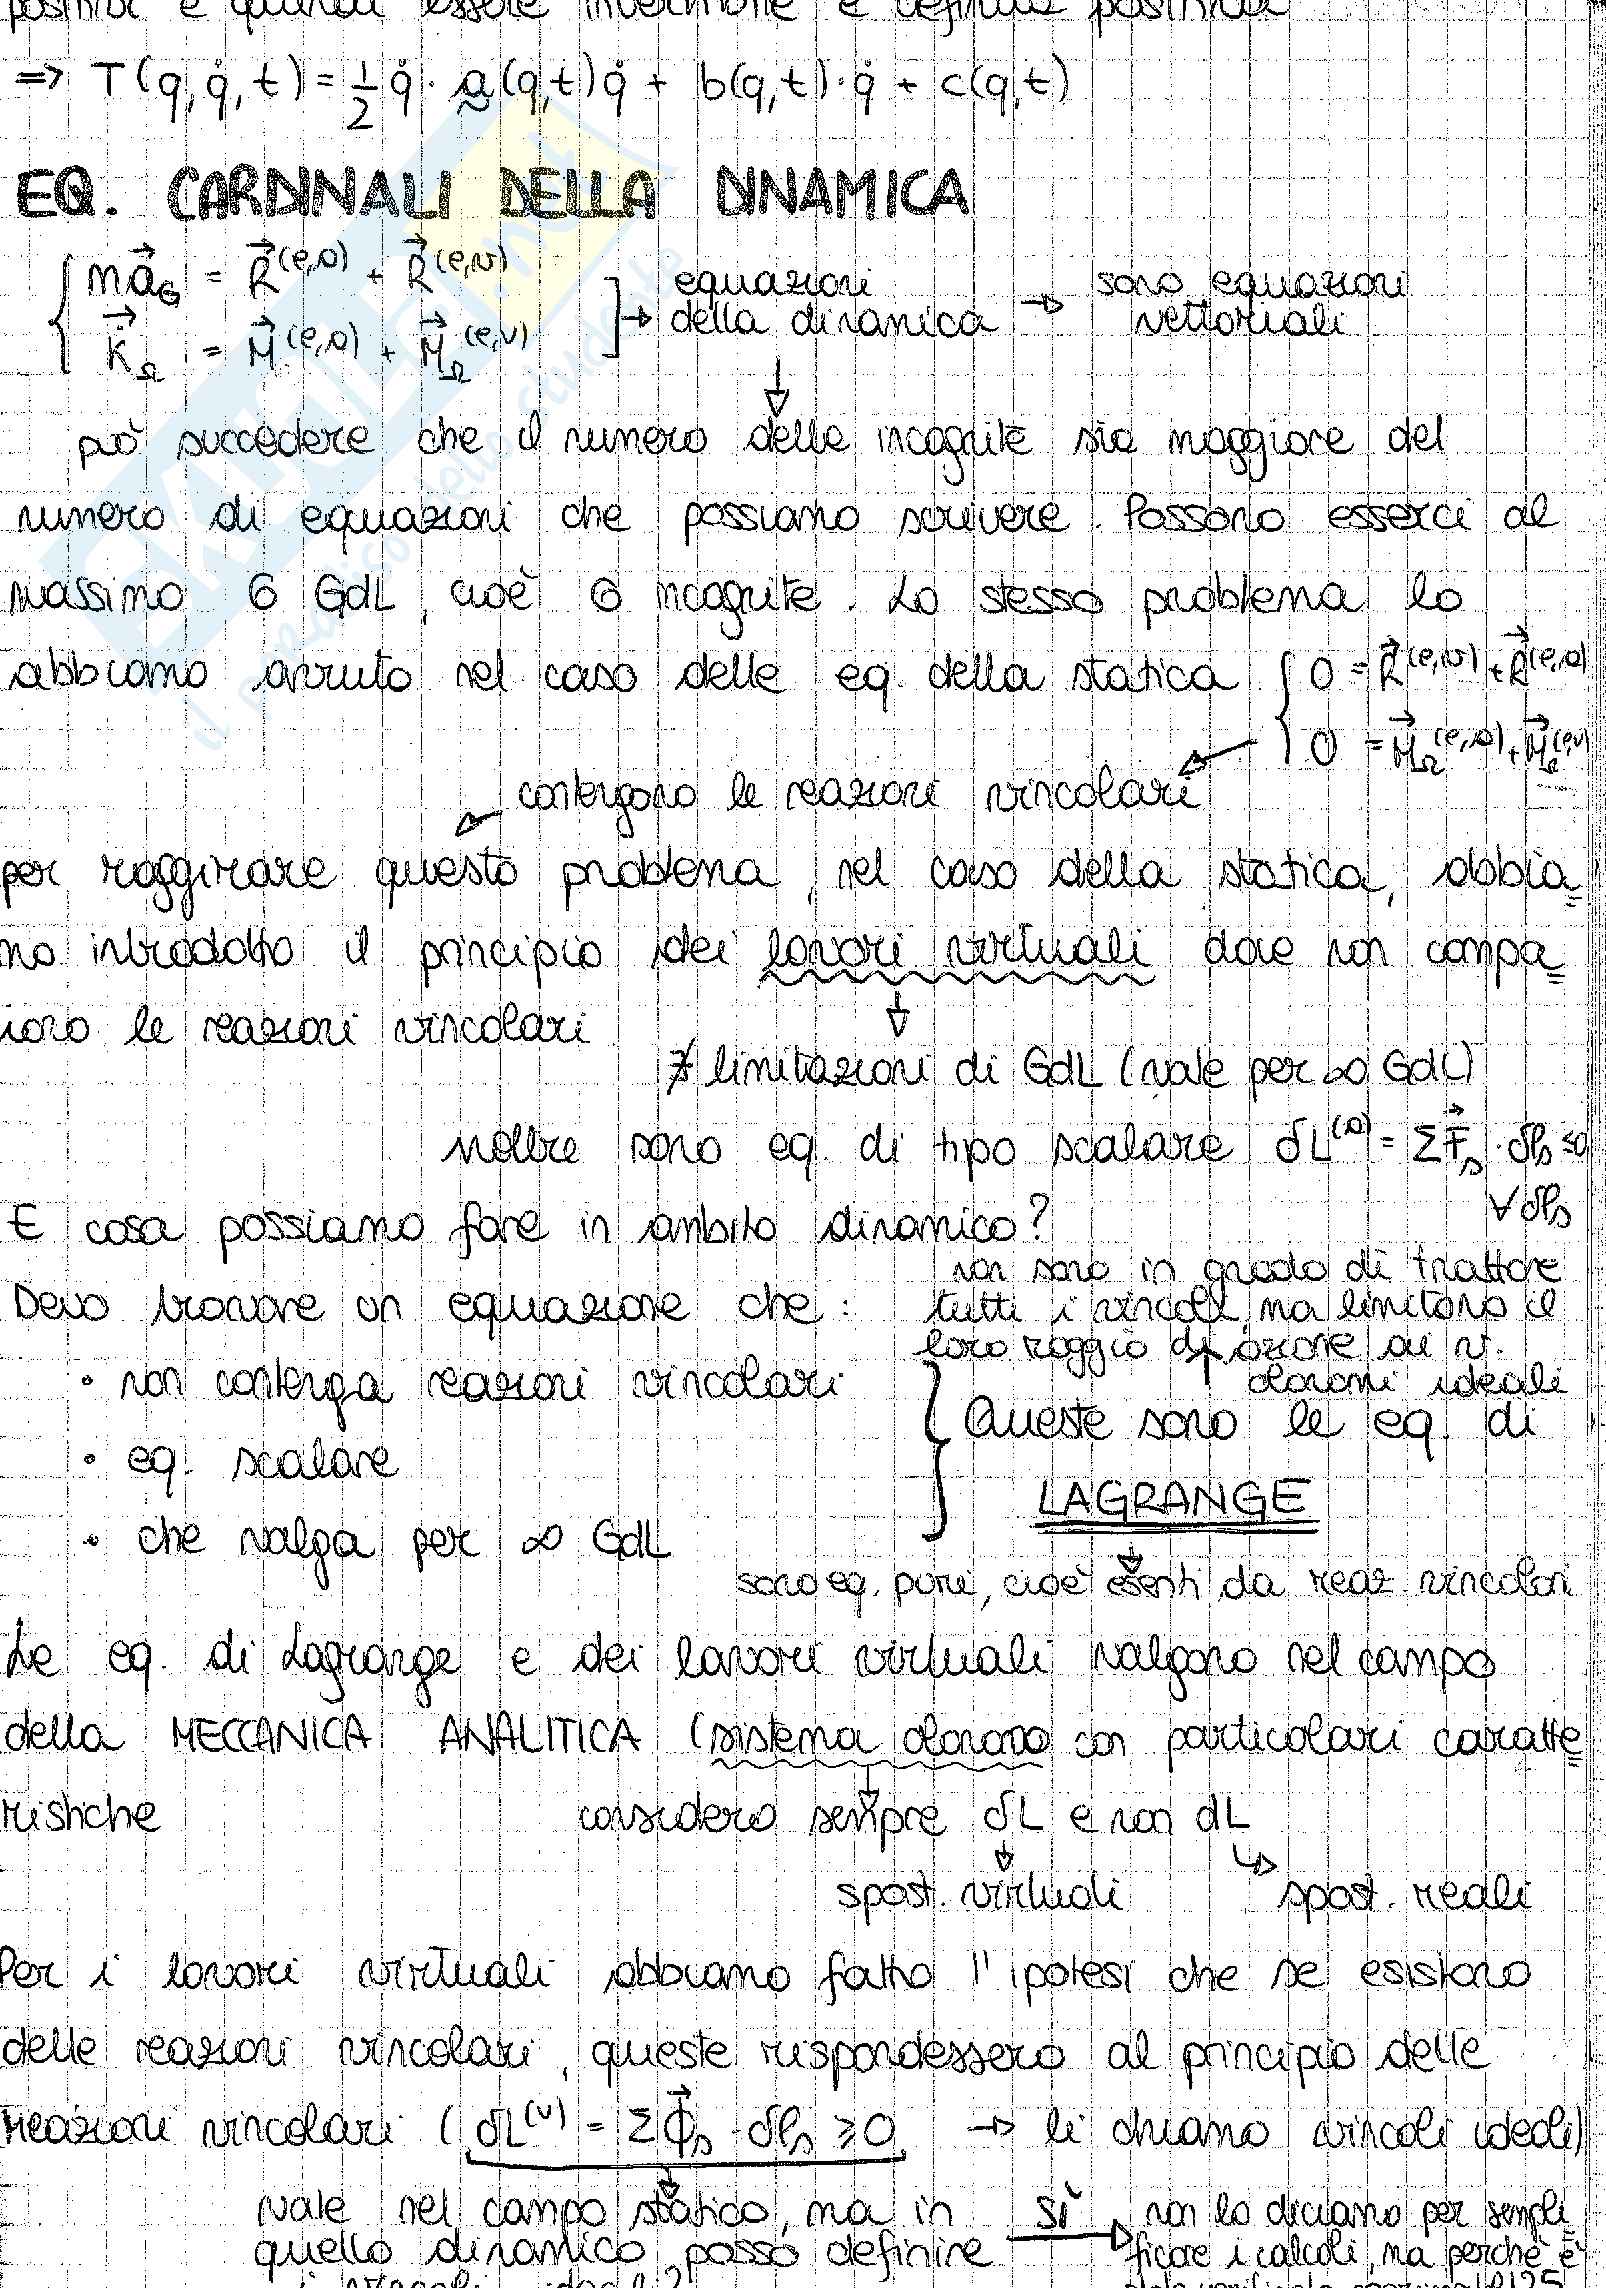 ⇒ T(q, q̇, t) = 1/2 q̇ · a(q,t) q̇ + b(q,t) · q̇ + c(q,t)
EQ. CARDINALI DELLA DINAMICA
{ m a⃗_G = R⃗^(e,a) + R⃗^(e,v)
K⃗̇_Ω = M⃗^(e,a) + M⃗_Ω^(e,v) ] → equazioni della dinamica → sono equazioni vettoriali
può succedere che il numero delle incognite sia maggiore del
numero di equazioni che possiamo scrivere. Possono esserci al
massimo 6 GdL, cioè 6 incognite. Lo stesso problema lo
abbiamo avuto nel caso delle eq. della statica { 0 = R⃗^(e,v) + R⃗^(e,a)
0 = M⃗_Ω^(e,a) + M⃗_Ω^(e,v)
contengono le reazioni vincolari
per raggirare questo problema, nel caso della statica, abbia
mo introdotto il principio dei lavori virtuali dove non compa
iono le reazioni vincolari
∄ limitazioni di GdL (vale per ∞ GdL)
inoltre sono eq. di tipo scalare δL^(a) = Σ F⃗_s · δP_s ≤ 0
∀ δP_s
E cosa possiamo fare in ambito dinamico?
Devo trovare un equazione che:
non sono in grado di trattare
tutti i vincoli, ma limitano il
loro raggio di azione ai v.
olonomi ideali
• non contenga reazioni vincolari
• eq. scalare
• che valga per ∞ GdL
} Queste sono le eq. di
LAGRANGE
sono eq. pure, cioè esenti da reaz. vincolari
Le eq. di Lagrange e dei lavori virtuali valgono nel campo
della MECCANICA ANALITICA (sistema olonomo con particolari caratte
ristiche
considero sempre δL e non dL
spost. virtuali spost. reali
Per i lavori virtuali abbiamo fatto l'ipotesi che se esistono
delle reazioni vincolari, queste rispondessero al principio delle
reazioni vincolari (δL^(v) = Σ Φ⃗_s · δP_s ≥ 0 → li chiamo vincoli ideali)
vale nel campo statico, ma in
quello dinamico posso definire
SÌ → non lo diciamo per sempli
ficare i calcoli, ma perchè è